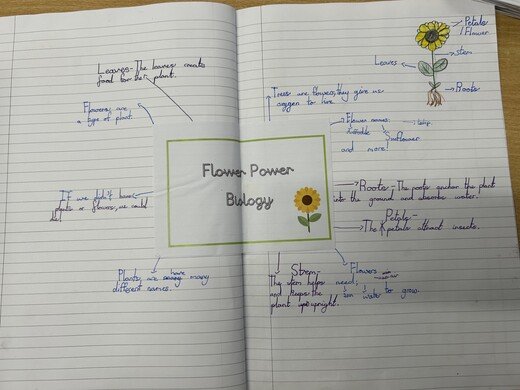 Leaves - The leaves create
food for the plant.
Flowers are
a type of plant.
If we didn't have
plants or flowers, we could
Plants have many
different names.
Flower Power
Biology
Petals
/Flower
stem
Leaves
Roots
Trees are flowers, they give us
oxygen to live.
Flower names:
tulip
Sunflower
and more!
Roots - The roots anchor the plant
into the ground and absorb water.
Petals -
The petals attract insects.
Stem -
The stem helps
and keeps the
plant upright.
Flowers
need: air
sun water to grow.